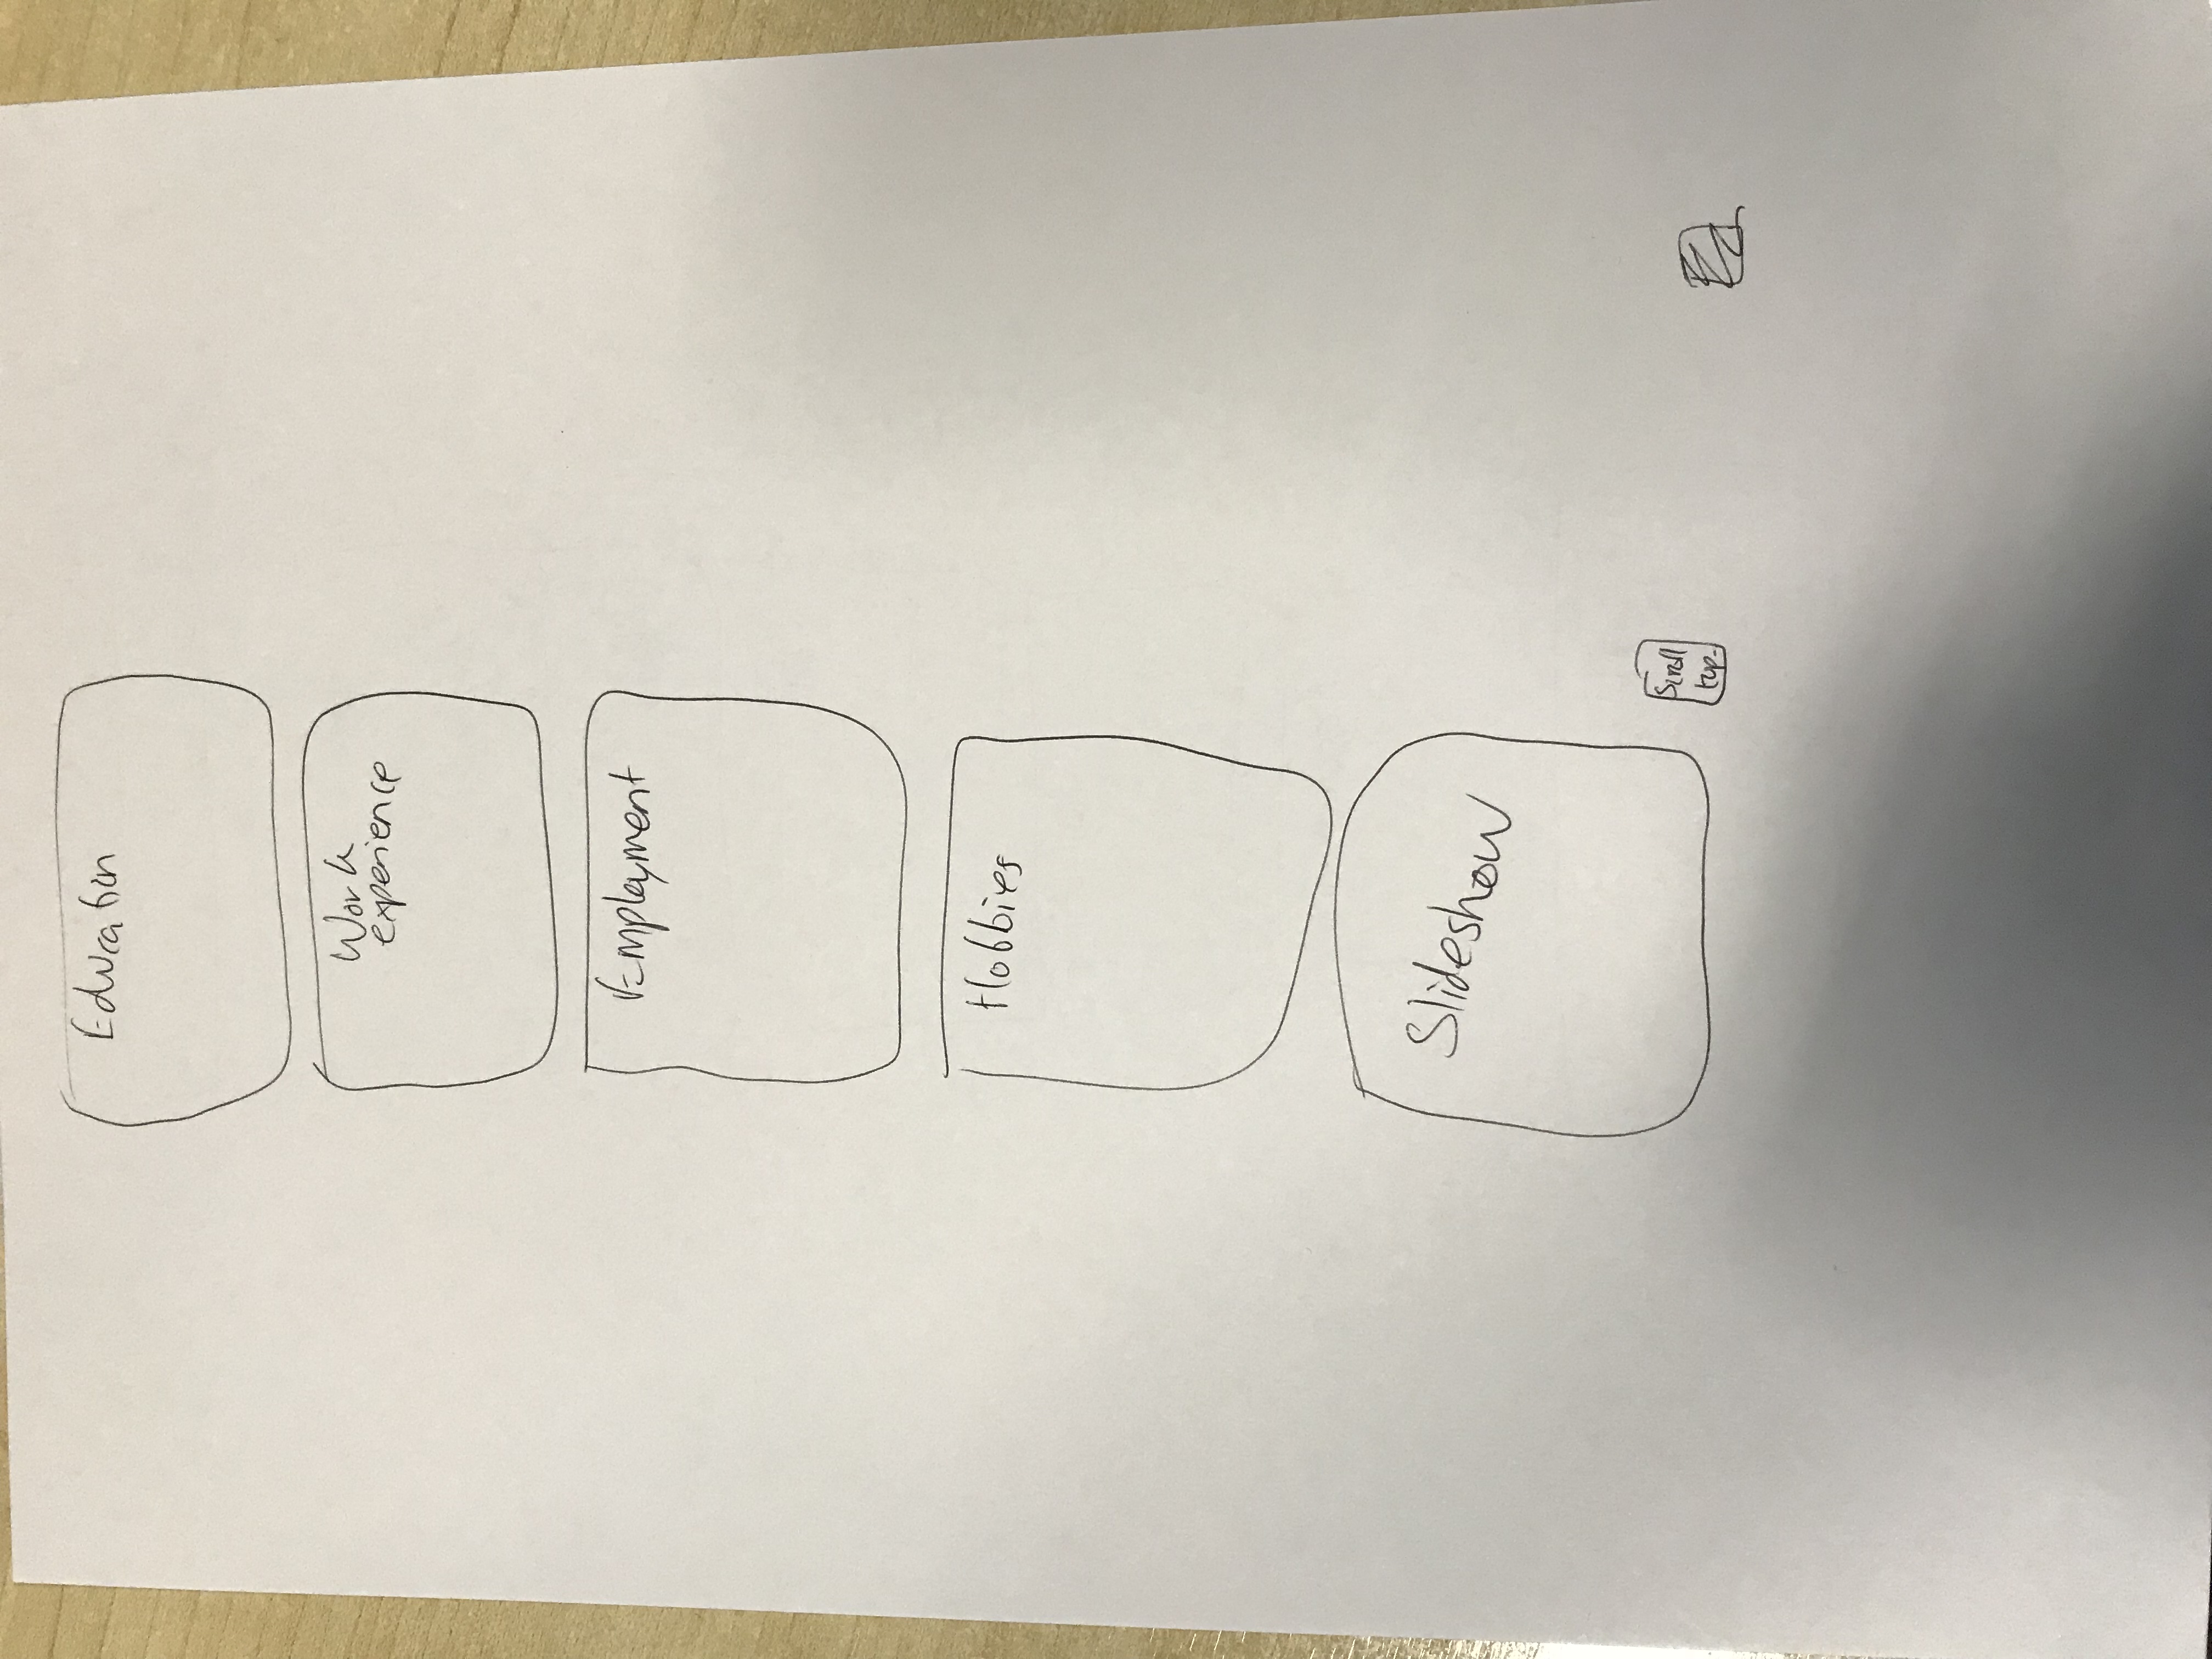 Education
Work
experience
Employment
Hobbies
Slideshow
Scroll
top